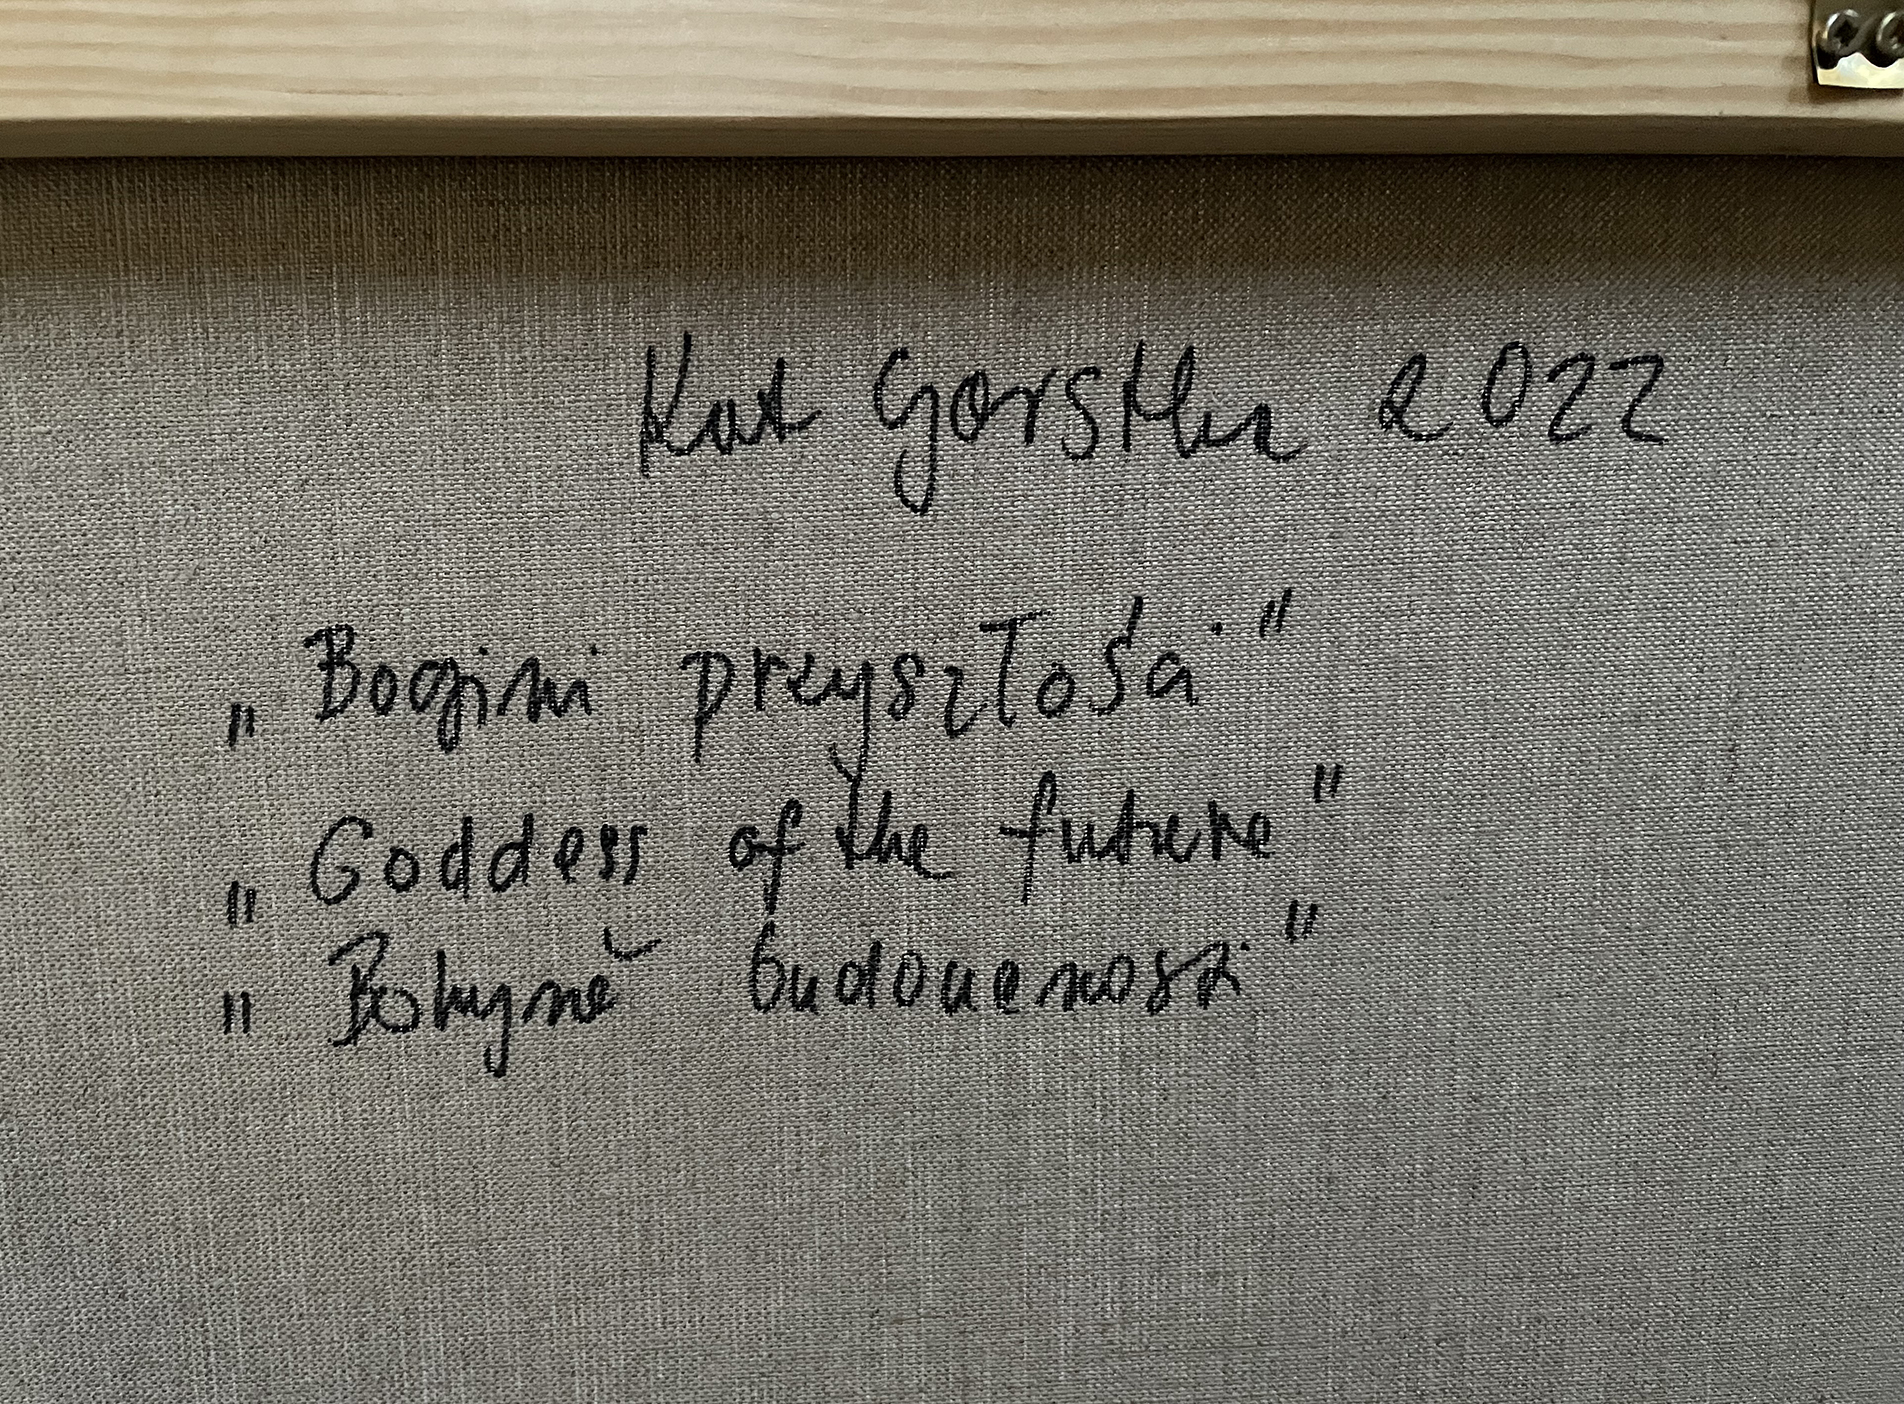 Kat Gorstka 2022
„Bogini przyszłości"
„Goddess of the future"
„Bohyně budoucnosti"